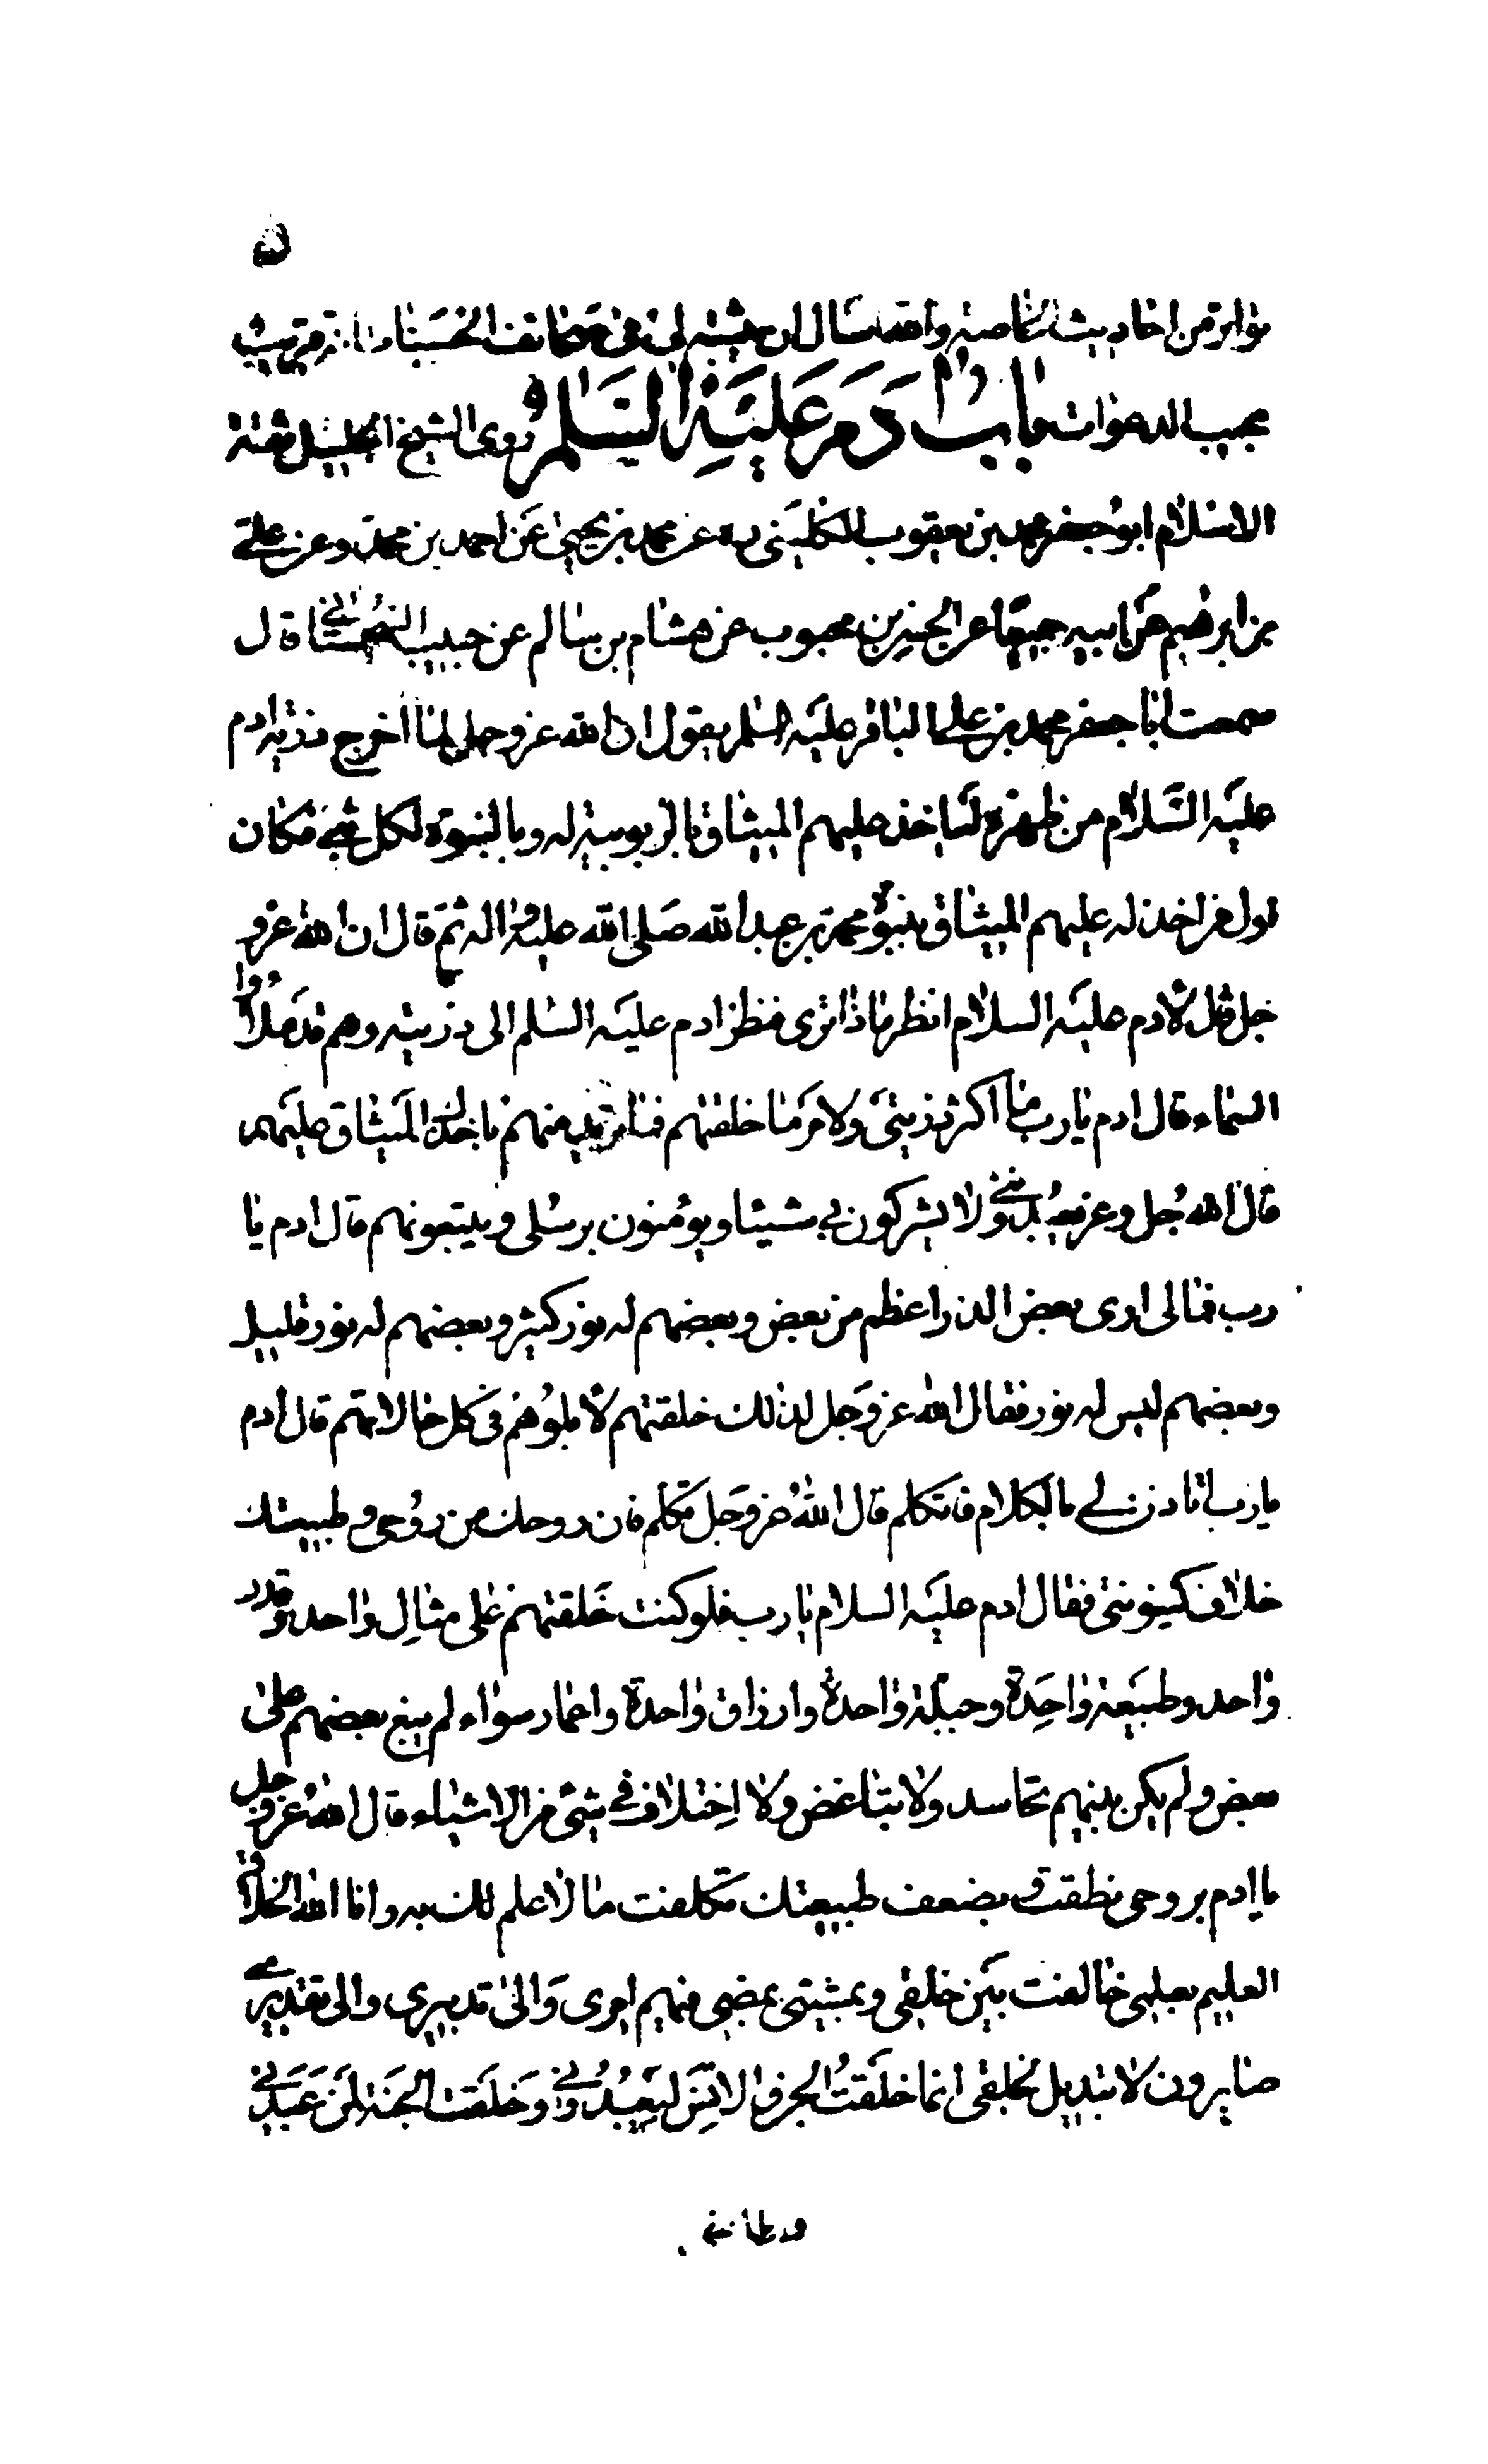 من احاديث الخاصة والله اسال ان يثبته لى فى صحائف الحسنات انه قريب
مجيب الدعوات باب ادم عليه السلم روى الشيخ الجليل ثقة
الاسلام ابو جعفر محمد بن يعقوب الكلينى ره عن محمد بن يحيى عن احمد بن محمد وعن على
بن ابرهيم عن ابيه جميعا عن الحسن بن محبوب عن هشام بن سالم عن حبيب السجستانى قال
سمعت ابا جعفر محمد بن على الباقر عليه السلم يقول ان الله عز وجل لما اخرج ذرية ادم
عليه السلام من ظهره لياخذ عليهم الميثاق بالربوبية له وبالنبوة لكل نبى فكان
اول من اخذ له عليهم الميثاق بنبوة محمد بن عبد الله صلى الله عليه واله ثم قال ان الله عز و
جل قال لادم عليه السلام انظر ماذا ترى فنظر ادم عليه السلم الى ذريته وهم ذر قد ملاوا
السماء قال ادم يا رب ما اكثر ذريتى ولامر ما خلقتهم فما تريد منهم باخذك الميثاق عليهم
قال الله جل وعز يعبدوننى ولا يشركون بى شيئا ويؤمنون برسلى ويتبعونهم قال ادم يا
رب فما لى ارى بعض الذر اعظم من بعض وبعضهم له نور كثير وبعضهم له نور قليل
وبعضهم ليس له نور فقال الله عز وجل لذلك خلقتهم لابلوهم فى كل حالاتهم قال ادم
يا رب فتاذن لى بالكلام فاتكلم قال الله عز وجل تكلم فان روحك من روحى وطبيعتك
خلاف كينونتى فقال ادم عليه السلام يا رب فلو كنت خلقتهم على مثال واحد وقدر
واحد وطبيعة واحدة وجبلة واحدة وارزاق واحدة واعمار سواء لم يبغ بعضهم على
بعض ولم يكن بينهم تحاسد ولا تباغض ولا اختلاف فى شئ من الاشياء قال الله عز وجل
يا ادم بروحى نطقت وبضعف طبيعتك تكلفت ما لا علم لك به وانا الله الخلاق
العليم بعلمى خالفت بين خلقى وبمشيتى يمضى فيهم امرى والى تدبيرى والى تقديرى
صايرون لا تبديل لخلقى انما خلقت الجن والانس ليعبدونى وخلقت الجنة لمن عبدنى